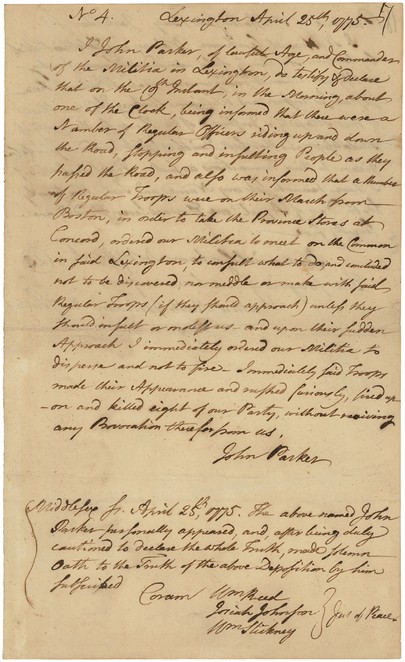 No 4. Lexington April 25th, 1775.
I John Parker, of lawful Age, and Commander
of the Militia in Lexington, do testify & declare
that on the 19th Instant, in the Morning, about
one of the Clock, being informed that there were a
Number of Regular Officers riding up and down
the Road, stopping and insulting People as they
passed the Road, and also was informed that a Number
of Regular Troops were on their March from
Boston, in order to take the Province Stores at
Concord, ordered our Militia to meet on the Common
in said Lexington, to consult what to do, and concluded
not to be discovered, nor meddle or make with said
Regular Troops (if they should approach) unless they
should insult or molest us - and upon their sudden
Approach I immediately ordered our Militia to
disperse and not to fire - Immediately said Troops
made their Appearance and rushed furiously, fired up-
-on and killed eight of our Party, without receiving
any Provocation therefor from us.
John Parker
Middlesex Ss. April 25th, 1775. The above named John
Parker personally appeared, and after being duly
cautioned to declare the whole Truth, made solemn
Oath to the Truth of the above Deposition by him
subscribed
Coram Wm Reed
Josiah Johnson } Jus of Peace
Wm Stickney